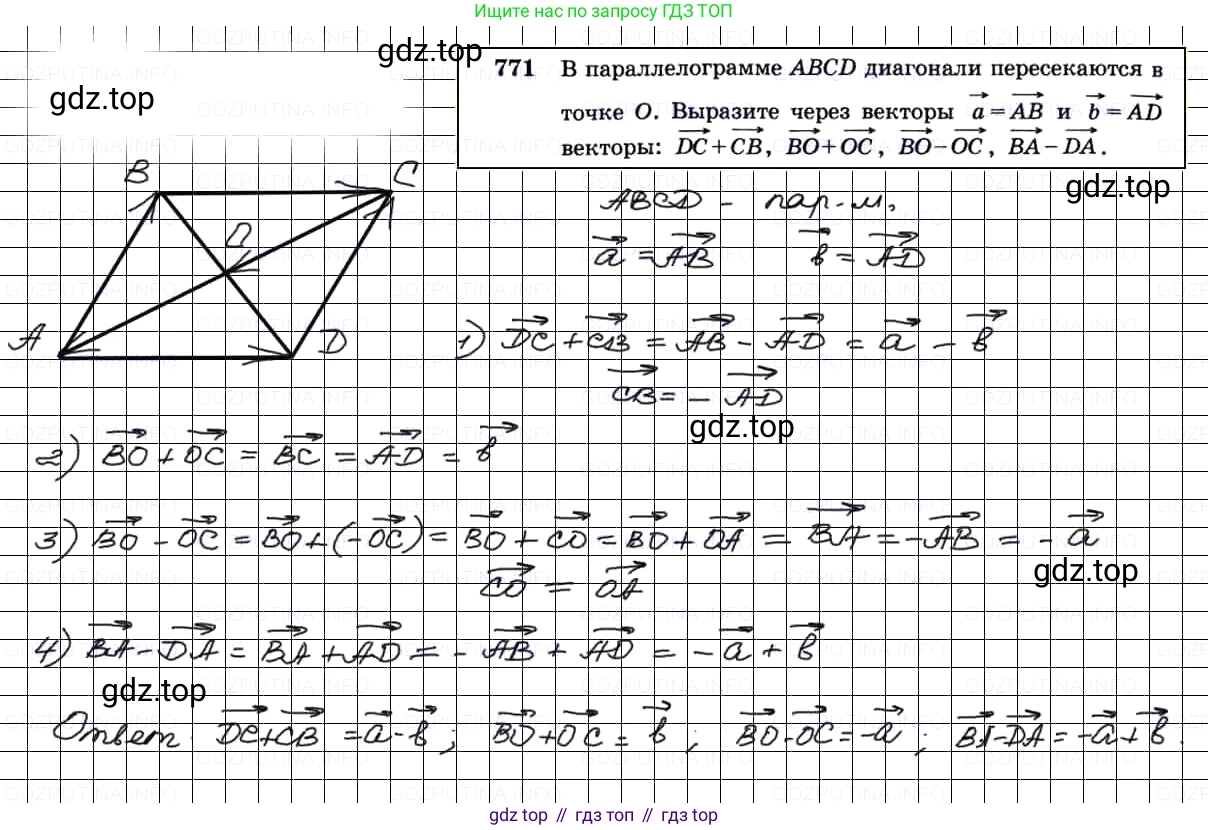 Ищите нас по запросу ГДЗ ТОП
gdz.top
gdz.top
771 В параллелограмме ABCD диагонали пересекаются в
точке O. Выразите через векторы a⃗ = AB⃗ и b⃗ = AD⃗
векторы: DC⃗ + CB⃗, BO⃗ + OC⃗, BO⃗ − OC⃗, BA⃗ − DA⃗.
gdz.top
B
C
O
A
D
ABCD - пар-м,
a⃗ = AB⃗ b⃗ = AD⃗
1) DC⃗ + CB⃗ = AB⃗ - AD⃗ = a⃗ - b⃗
CB⃗ = - AD⃗
gdz.top
2) BO⃗ + OC⃗ = BC⃗ = AD⃗ = b⃗
3) BO⃗ - OC⃗ = BO⃗ + (-OC⃗) = BO⃗ + CO⃗ = BO⃗ + OA⃗ = BA⃗ = -AB⃗ = - a⃗
CO⃗ = OA⃗
gdz.top
4) BA⃗ - DA⃗ = BA⃗ + AD⃗ = - AB⃗ + AD⃗ = - a⃗ + b⃗
gdz.top
Ответ. DC⃗ + CB⃗ = a⃗ - b⃗ ; BO⃗ + OC⃗ = b⃗ ; BO⃗ - OC⃗ = -a⃗ ; BA⃗ - DA⃗ = -a⃗ + b⃗.
gdz top // гдз топ // gdz top
GDZPUTINA.INFO